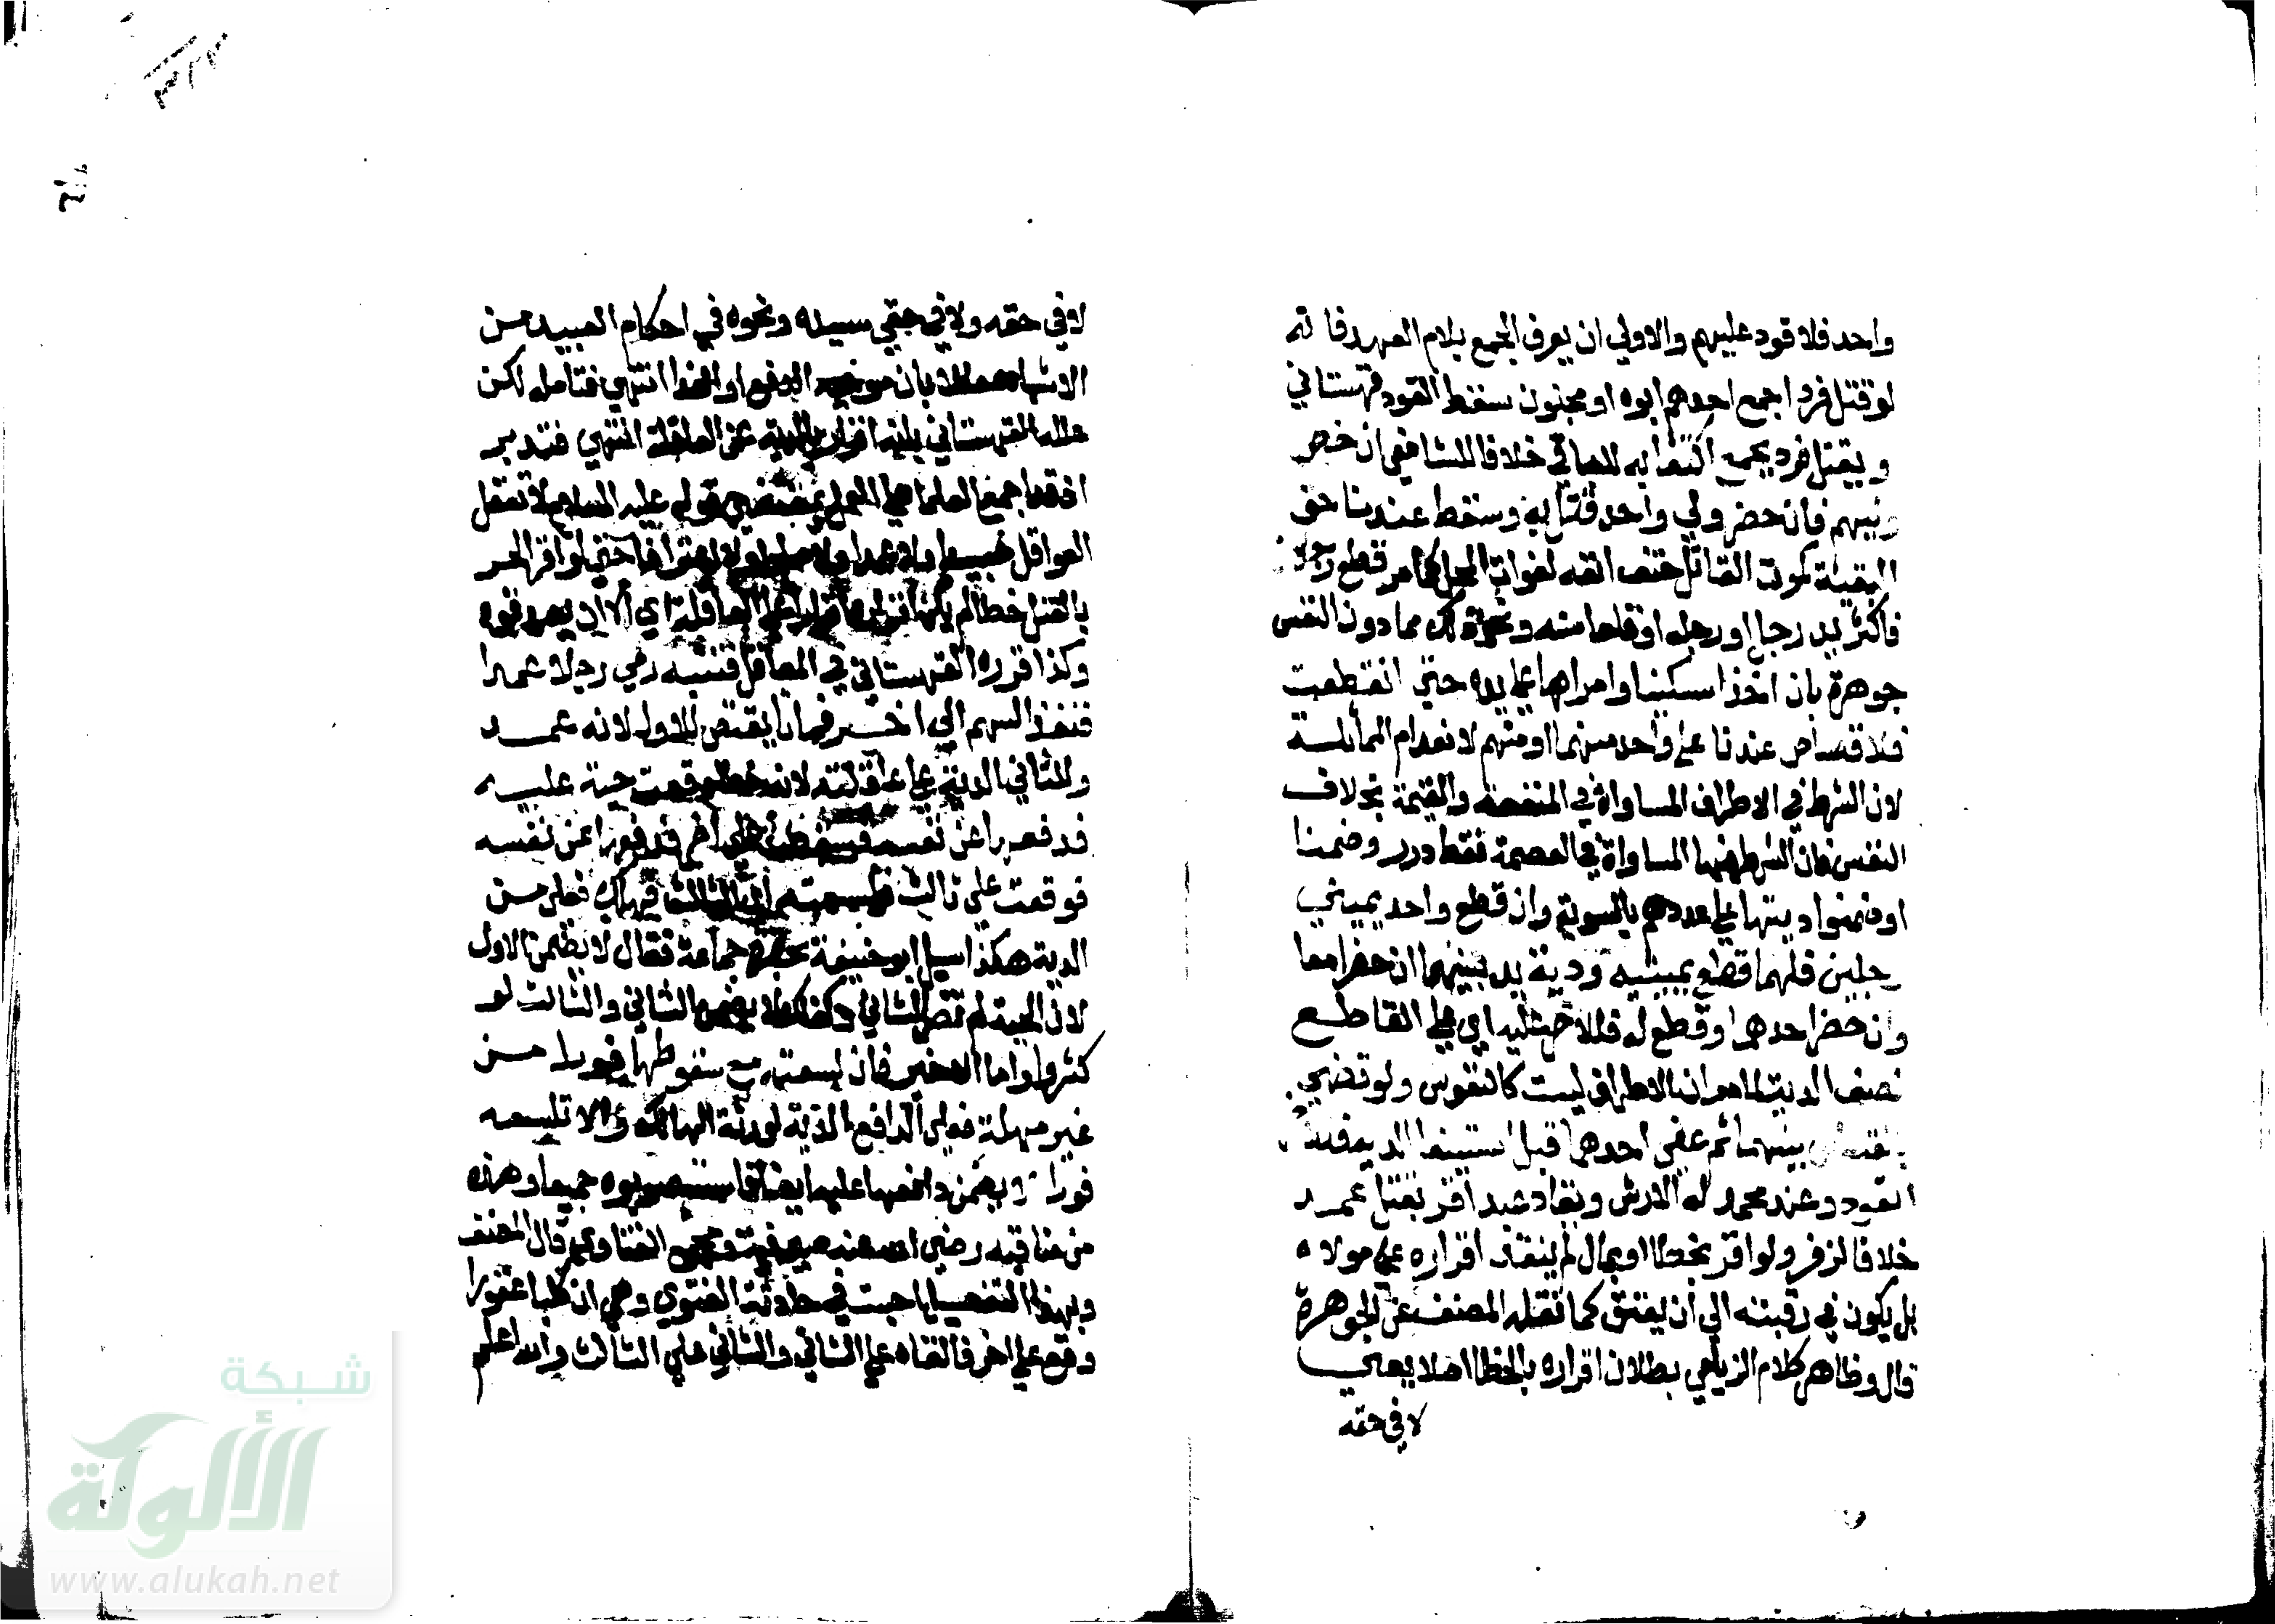 واحد فلا قود عليهم والاولي ان يعرف الجمع بلام العهد فانه
لو قتل فرد اجمع احدهم ابوه او مجنون سقط القود قهستاني
ويقتل فرد بجمع اكتفا به للباقي خلافا للشافعي ان حضر
وليهم فان حضر ولي واحد قتل به وسقط عندنا حق
البقية كموت القاتل حتف انفه لفوات المحل كما مر قطع رجلان
فاكثر يد رجل او رجله او قلعا سنه ونحو ذلك مما دون النفس
جوهرة بان اخذا سكينا وامراها علي يده حتي انقطعت
فلا قصاص عندنا علي واحد منهما او منهم لانعدام المماثلة
لان الشرط في الاطراف المساواة في المنفعة والقيمة بخلاف
النفس فان الشرط فيها المساواة في العصمة فقط درر وضمنا
او ضمنوا ديتها علي عددهم بالسوية وان قطع واحد يميني
رجلين فلهما قطع يمينه ودية يد بينهما ان حضرا معا
وان حضر احدهما وقطع له فللاخر عليه اي علي القاطع
نصف الدية لما مر ان الاطراف ليست كالنفوس ولو قضي
بالقصاص بينهما ثم عفي احدهما قبل استيفا الدية فله
القود وعند محمد له الارش ويقاد عبد اقر بقتل عمد
خلافا لزفر ولو اقر بخطا او بمال لم ينفذ اقراره علي مولاه
بل يكون في رقبته الي ان يعتق كما نقله المصنف عن الجوهرة
قال وظاهر كلام الزيلعي بطلان اقراره بالخطا اصلا يعني
لا في حقه
لا في حقه ولا في حق سيده ونحوه في احكام العبيد من
الاشباه معللا بان موجبه الدفع او الفدا انتهي فتامله لكن
علله القهستاني بانه اقرار بالدية علي العاقلة انتهي فتدبره
اذ قد اجمع العلما علي العمل بمقتضي قوله عليه السلام لا تعقل
العواقل عبدا ولا عمدا ولا صلحا ولا اعترافا حتي لو اقر الحر
بالقتل خطا لم يكن اقراره اقرارا علي العاقلة اي الا ان يصدقوه
وكذا قرره القهستاني في المعاقل فتنبه رمي رجلا عمدا
فنفذ السهم الي اخر فماتا يقتص للاول لانه عمد
وللثاني الدية علي عاقلته لانه خطا وقعت حية عليه
فدفعها عن نفسه فسقطت علي اخر فدفعها عن نفسه
فوقعت علي ثالث فلسعته اي الثالث فهلك فعلي من
الدية هكذا سيل ابو حنيفة بحضرة جماعة فقال لا يضمن الاول
لان الحية لم تضر الثاني وكذلك لا يضمن الثاني والثالث لو
كثروا واما الاخير فان لسعته مع سقوطها فورا من
غير مهلة فعلي الدافع الدية لورثة الهالك والا تلسعه
فورا لا يضمن دافعها عليه ايضا فاستصوبوه جميعا وهذه
من مناقبه رضي الله عنه صيرفية ومجمع الفتاوي قال المصنف
وبهذا التفصيل اجبت في حادثة الفتوي وهي ان كلبا عقورا
وقع علي اخر فالقاه علي الثاني والثاني علي الثالث والله اعلم
شبكة
الألوكة
www.alukah.net